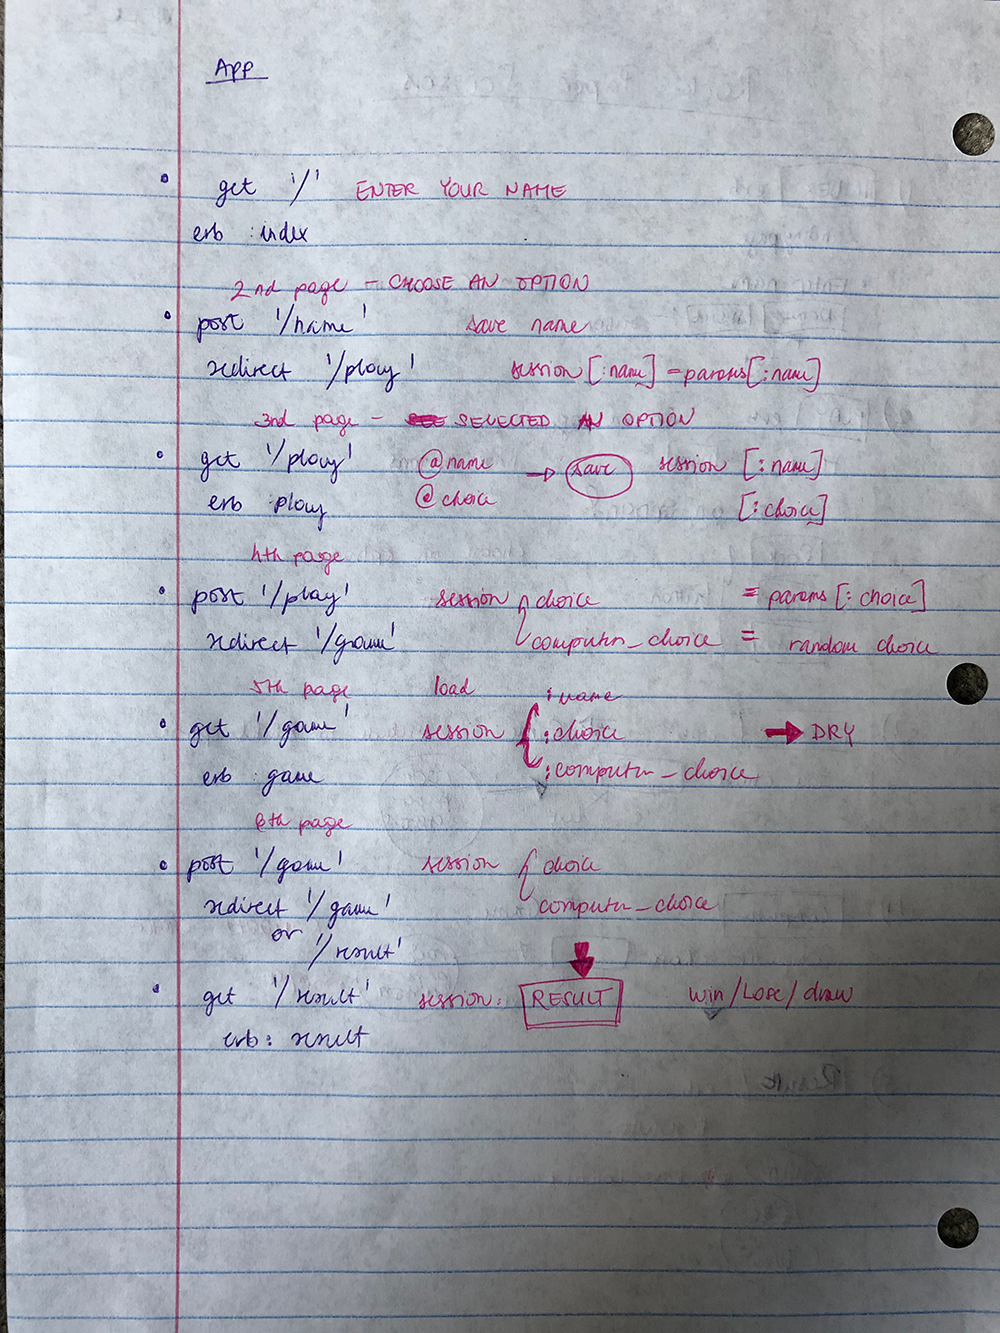 App
get '/' ENTER YOUR NAME
erb :index
2nd page - CHOOSE AN OPTION
post '/name' save name
redirect '/play' session[:name] = params[:name]
3nd page - SELECTED AN OPTION
get '/play' @name → save session [:name]
erb :play @choice [:choice]
4th page
post '/play' session { choice = params[:choice]
redirect '/game' computer_choice = random choice
5th page load :name
get '/game' session { :choice → DRY
erb :game :computer_choice
6th page
post '/game' session { choice
redirect '/game' computer_choice
or '/result'
get '/result' session: RESULT win/Lose/draw
erb: result